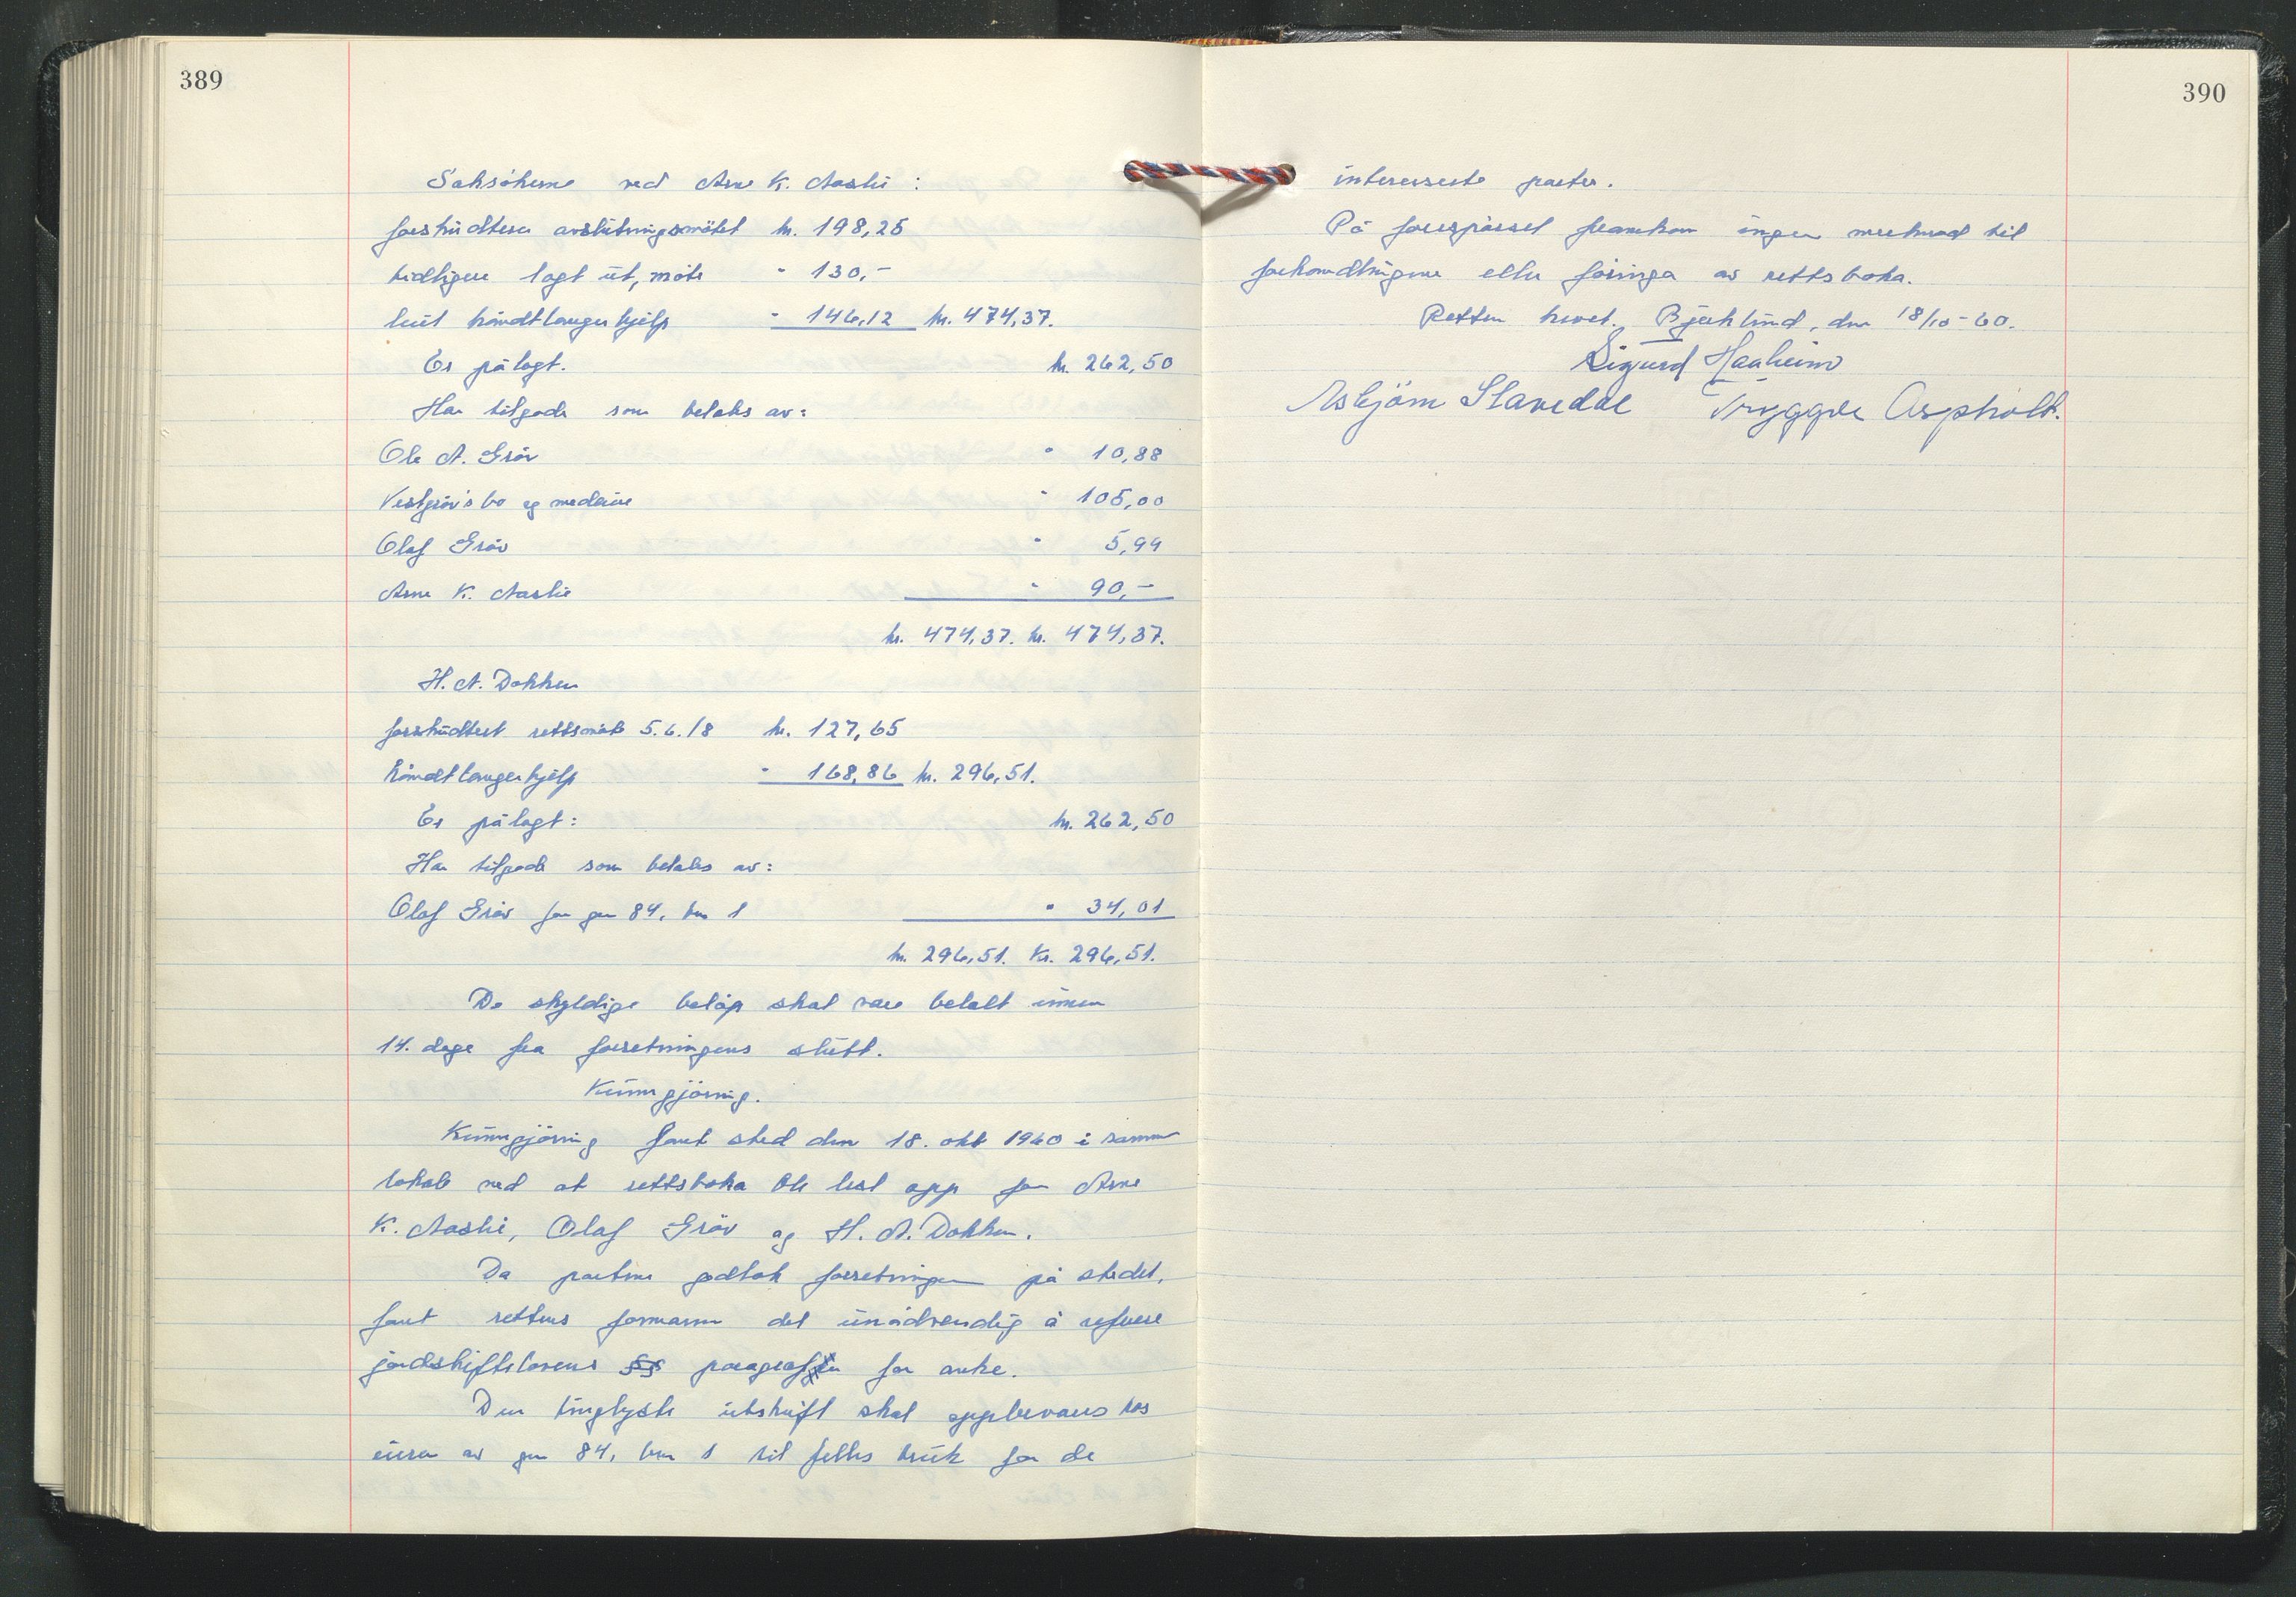 389
Saksøkerne ved Arne K. Aaslie :
forskudtera avslutningsmøtet kr. 198,25
tidligere lagt ut, møte " 130,-
leiet håndtlangerhjelp " 146,12 kr. 474,37.
Er pålagt. kr. 262,50
Har tilgode som betales av:
Ole A. Grøv " 10,88
Vestgrøv's bo og medeiere " 105,00
Olaf Grøv " 5,99
Arne K. Aaslie " 90,-
kr. 474,37. kr. 474,37.
H. A. Dokken
forskudtert rettsmøte 5.6./8 kr. 127,65
håndtlangerhjelp " 168,86 kr. 296,51.
Er pålagt: kr. 262,50
Har tilgode som betales av:
Olaf Grøv for gnr 84, bnr 1 " 34,01
kr. 296,51. Kr. 296,51.
De skyldige beløp skal være betalt innen
14. dage fra forretningens slutt.
Kunngjøring.
Kunngjøring fant sted den 18. okt 1960 i samme
lokale ved at rettsboka ble lest opp for Arne
K. Aaslie, Olaf Grøv og H. A. Dokken.
Da partene godtok forretningen på stedet,
fant rettens formann det unødvendig å referere
jordskiftelovens §§ paragrafer for anke.
Den tinglyste utskrift skal oppbevares hos
eieren av gnr 84, bnr 1 til felles bruk for de
390
interesserte parter.
På forespørsel framkom ingen merknad til
forhandlingene eller føringa av rettsboka.
Retten hevet. Bjørklund, den 18/10-60.
Sigurd Haaheim
Asbjørn Slavedal Tryggve Aspholt.